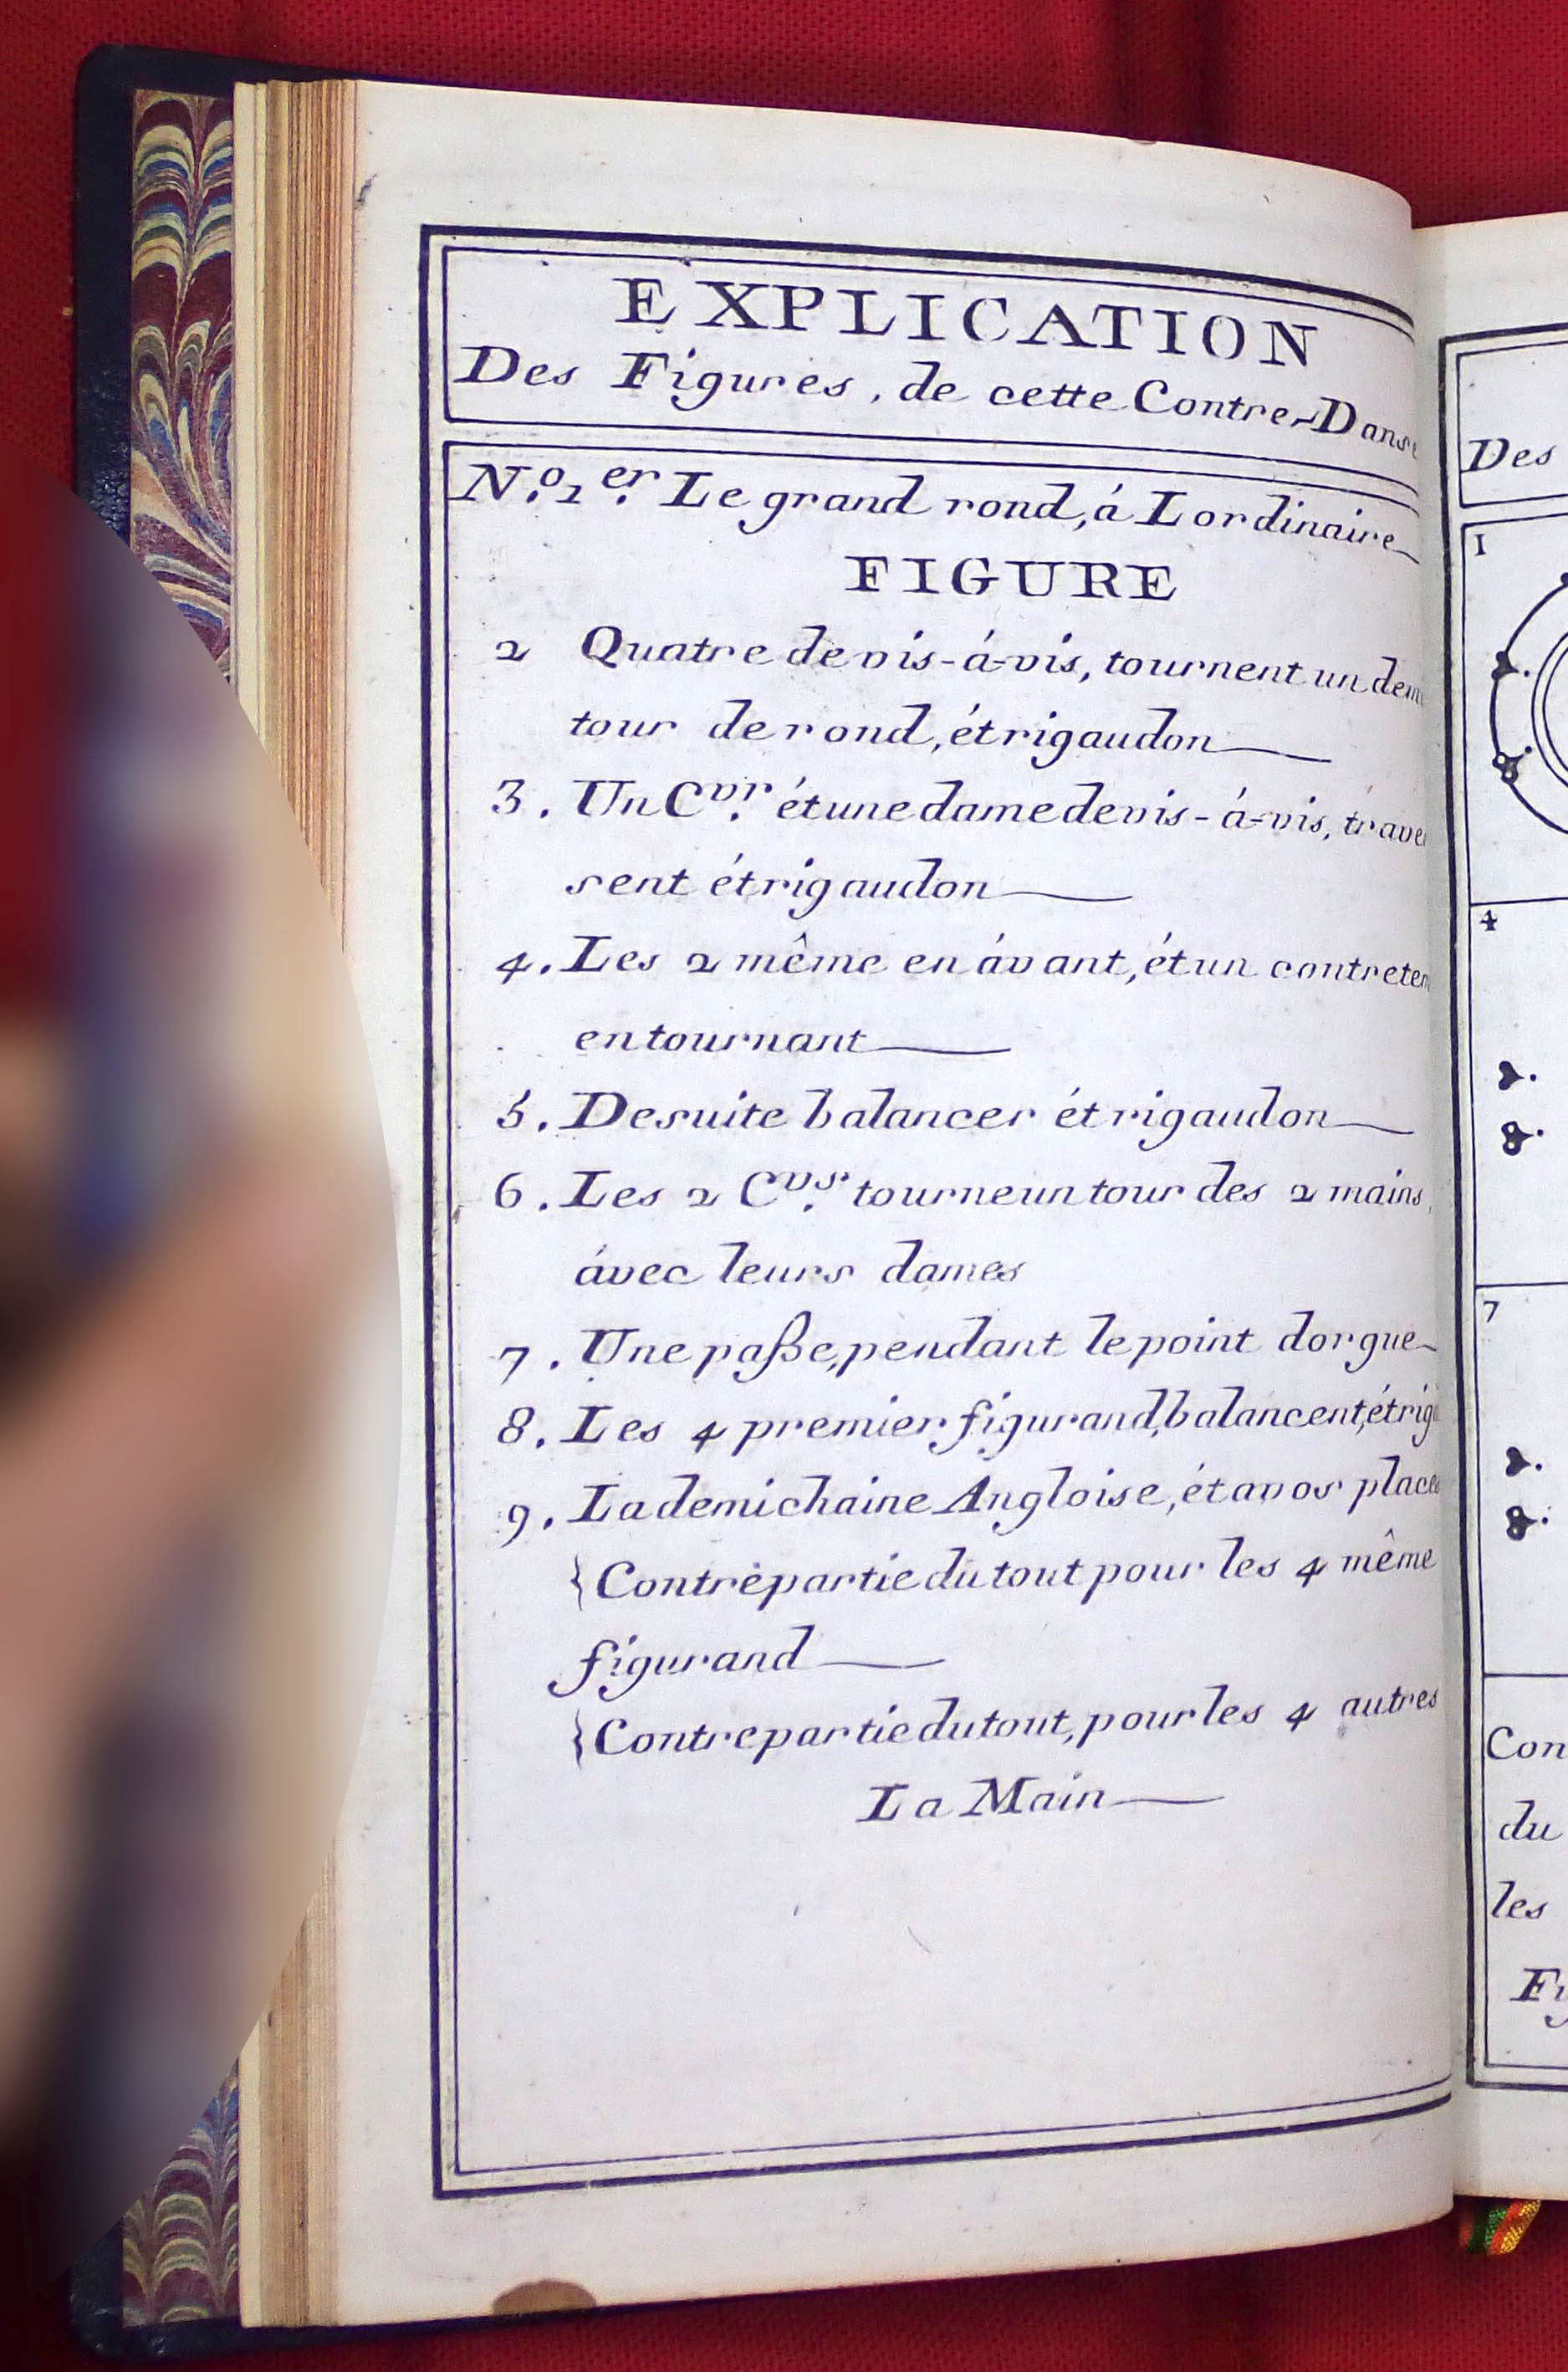 EXPLICATION
Des Figures, de cette Contre-Danse
N.º 1er. Le grand rond, á Lordinaire
FIGURE
2 Quatre de vis-á-vis, tournent un dem
tour de rond, ét rigaudon
3. Un Cvr. ét une dame de vis-á-vis, traver
sent ét rigaudon
4. Les 2 même en ávant, ét un contretem
en tournant
5. De suite balancer ét rigaudon
6. Les 2 Cvs. tourne un tour des 2 mains,
ávec leurs dames
7. Une paße, pendant le point dorgue
8. Les 4 premier figurand, balancent, ét rig
9. La demi chaine Angloise, ét a vos places
{Contrepartie du tout pour les 4 même
figurand
{Contrepartie du tout, pour les 4 autres
La Main
Des
1
4
7
Con
du
les